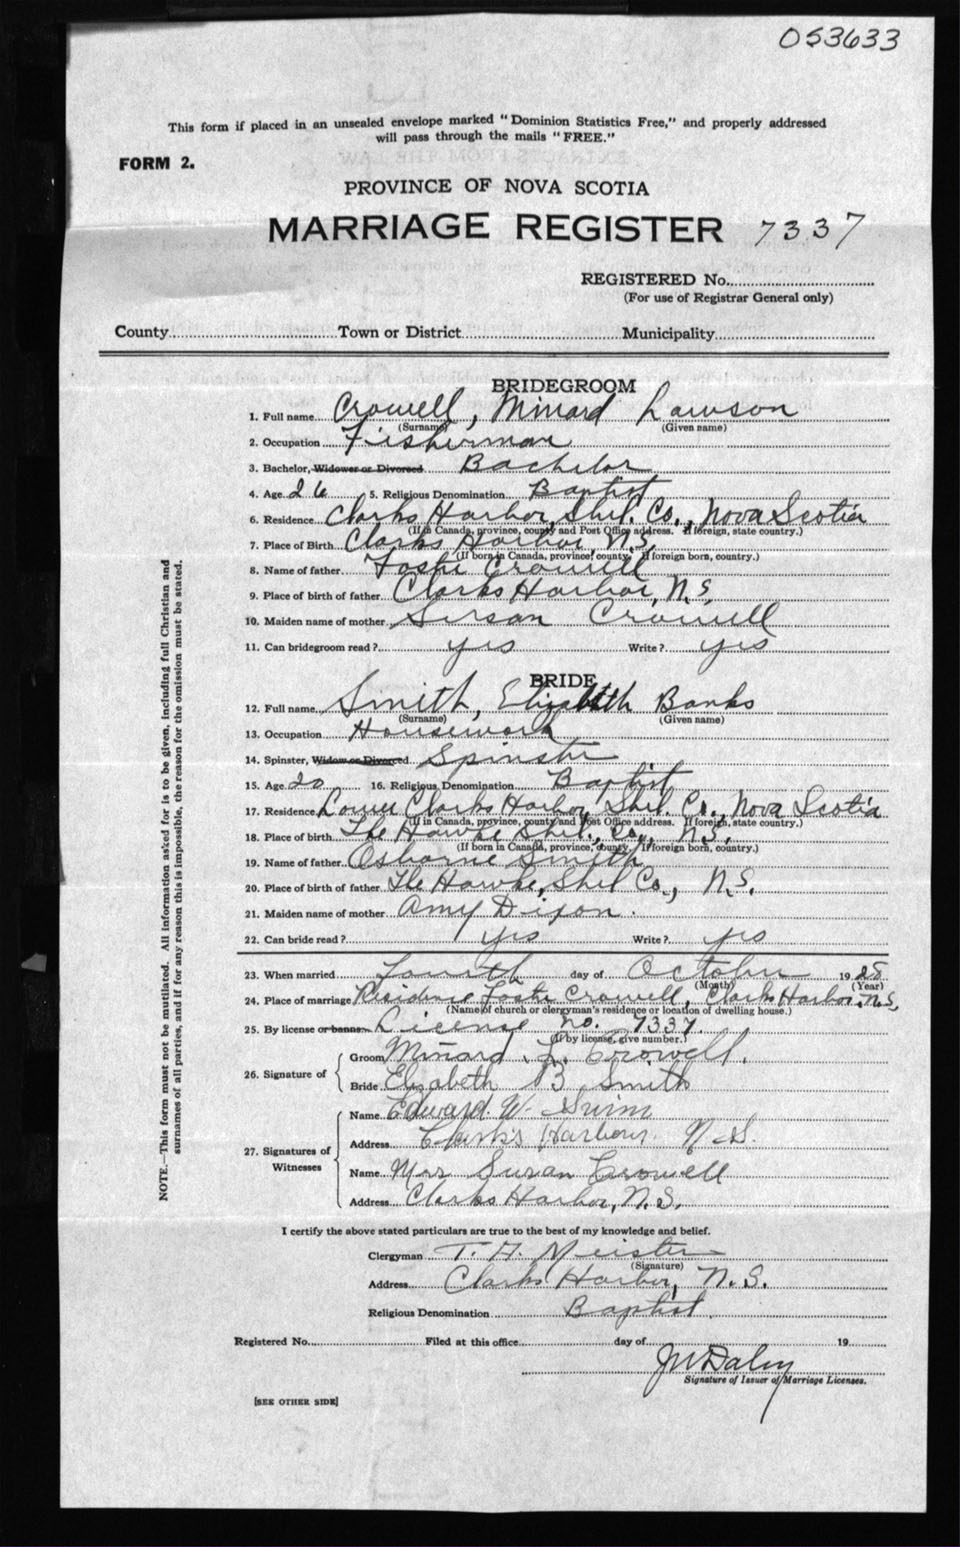 053633
This form if placed in an unsealed envelope marked "Dominion Statistics Free," and properly addressed
will pass through the mails "FREE."
FORM 2.
PROVINCE OF NOVA SCOTIA
MARRIAGE REGISTER 7337
REGISTERED No.
(For use of Registrar General only)
County Town or District Municipality
BRIDEGROOM
1. Full name Crowell, Minard Lawson
(Surname) (Given name)
2. Occupation Fisherman
3. Bachelor, Widower or Divorced Bachelor
4. Age 26 5. Religious Denomination Baptist
6. Residence Clarks Harbor, Shel. Co., Nova Scotia
(If in Canada, province, county and Post Office address. If foreign, state country.)
7. Place of Birth Clarks Harbor N.S.
(If born in Canada, province, county. If foreign born, country.)
8. Name of father Foster Crowell
9. Place of birth of father Clarks Harbor, N.S.
10. Maiden name of mother Susan Crowell
11. Can bridegroom read? yes Write? yes
BRIDE
12. Full name Smith, Elizabeth Banks
(Surname) (Given name)
13. Occupation Housework
14. Spinster, Widow or Divorced Spinster
15. Age 20 16. Religious Denomination Baptist
17. Residence Lower Clarks Harbor, Shel. Co., Nova Scotia
(If in Canada, province, county and Post Office address. If foreign, state country.)
18. Place of birth The Hawke Shel., Co., N.S.
(If born in Canada, province, county. If foreign born, country.)
19. Name of father Osborne Smith
20. Place of birth of father The Hawke, Shel Co., N.S.
21. Maiden name of mother Amy Dixon.
22. Can bride read? yes Write? yes
23. When married Fourth day of October 1928
(Month) (Year)
24. Place of marriage Residence Foster Crowell, Clarks Harbor, N.S.
(Name of church or clergyman's residence or location of dwelling house.)
25. By license or banns License no. 7337.
(If by license, give number.)
26. Signature of
Groom Minard L. Crowell.
Bride Elizabeth B Smith
27. Signatures of Witnesses
Name Edward. W. Swim
Address Clark's Harbour. N.S.
Name Mrs Susan Crowell
Address Clarks Harbor, N.S.
I certify the above stated particulars are true to the best of my knowledge and belief.
Clergyman T. H. Meister
(Signature)
Address Clarks Harbor, N.S.
Religious Denomination Baptist
Registered No. Filed at this office day of 19
JW Daley
Signature of Issuer of Marriage Licenses.
[SEE OTHER SIDE]
NOTE.—This form must not be mutilated. All information asked for is to be given, including full Christian and
surnames of all parties, and if for any reason this is impossible, the reason for the omission must be stated.